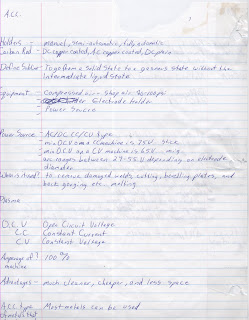 A.C.C.
1
Holders - manual, semi-automatic, fully automatic
Carbon Rod - DC copper coated, AC copper coated, DC plain
Define Sublime - To go from a Solid State to a gaseous state without the
intermediate liquid state
Equipment - Compressed air - shop air 80-100psi
Electrode holder
- Power Source
Power Source - AC/DC CC/CV type
- min OCV on a CC machine is 75V. stick
- min OCV on a CV machine is 65V mig
- arc ranges between 29-55V depending on electrode
diameter
When is it used? to remove damaged welds, cutting, bevelling plates, and
back gouging etc. melting
Plasma
O.C.V Open Circuit Voltage
C.C Constant Current
C.V Constant Voltage
Amperage of machine? 100%
Advantages - much cleaner, cheaper, and less space
A.C.C. type Most metals can be used